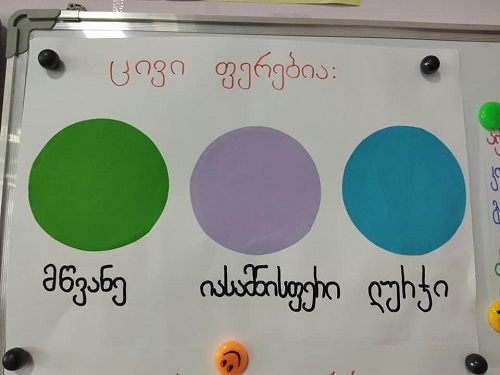 ცივი ფერებია:
მწვანე იასამნისფერი ლურჯი